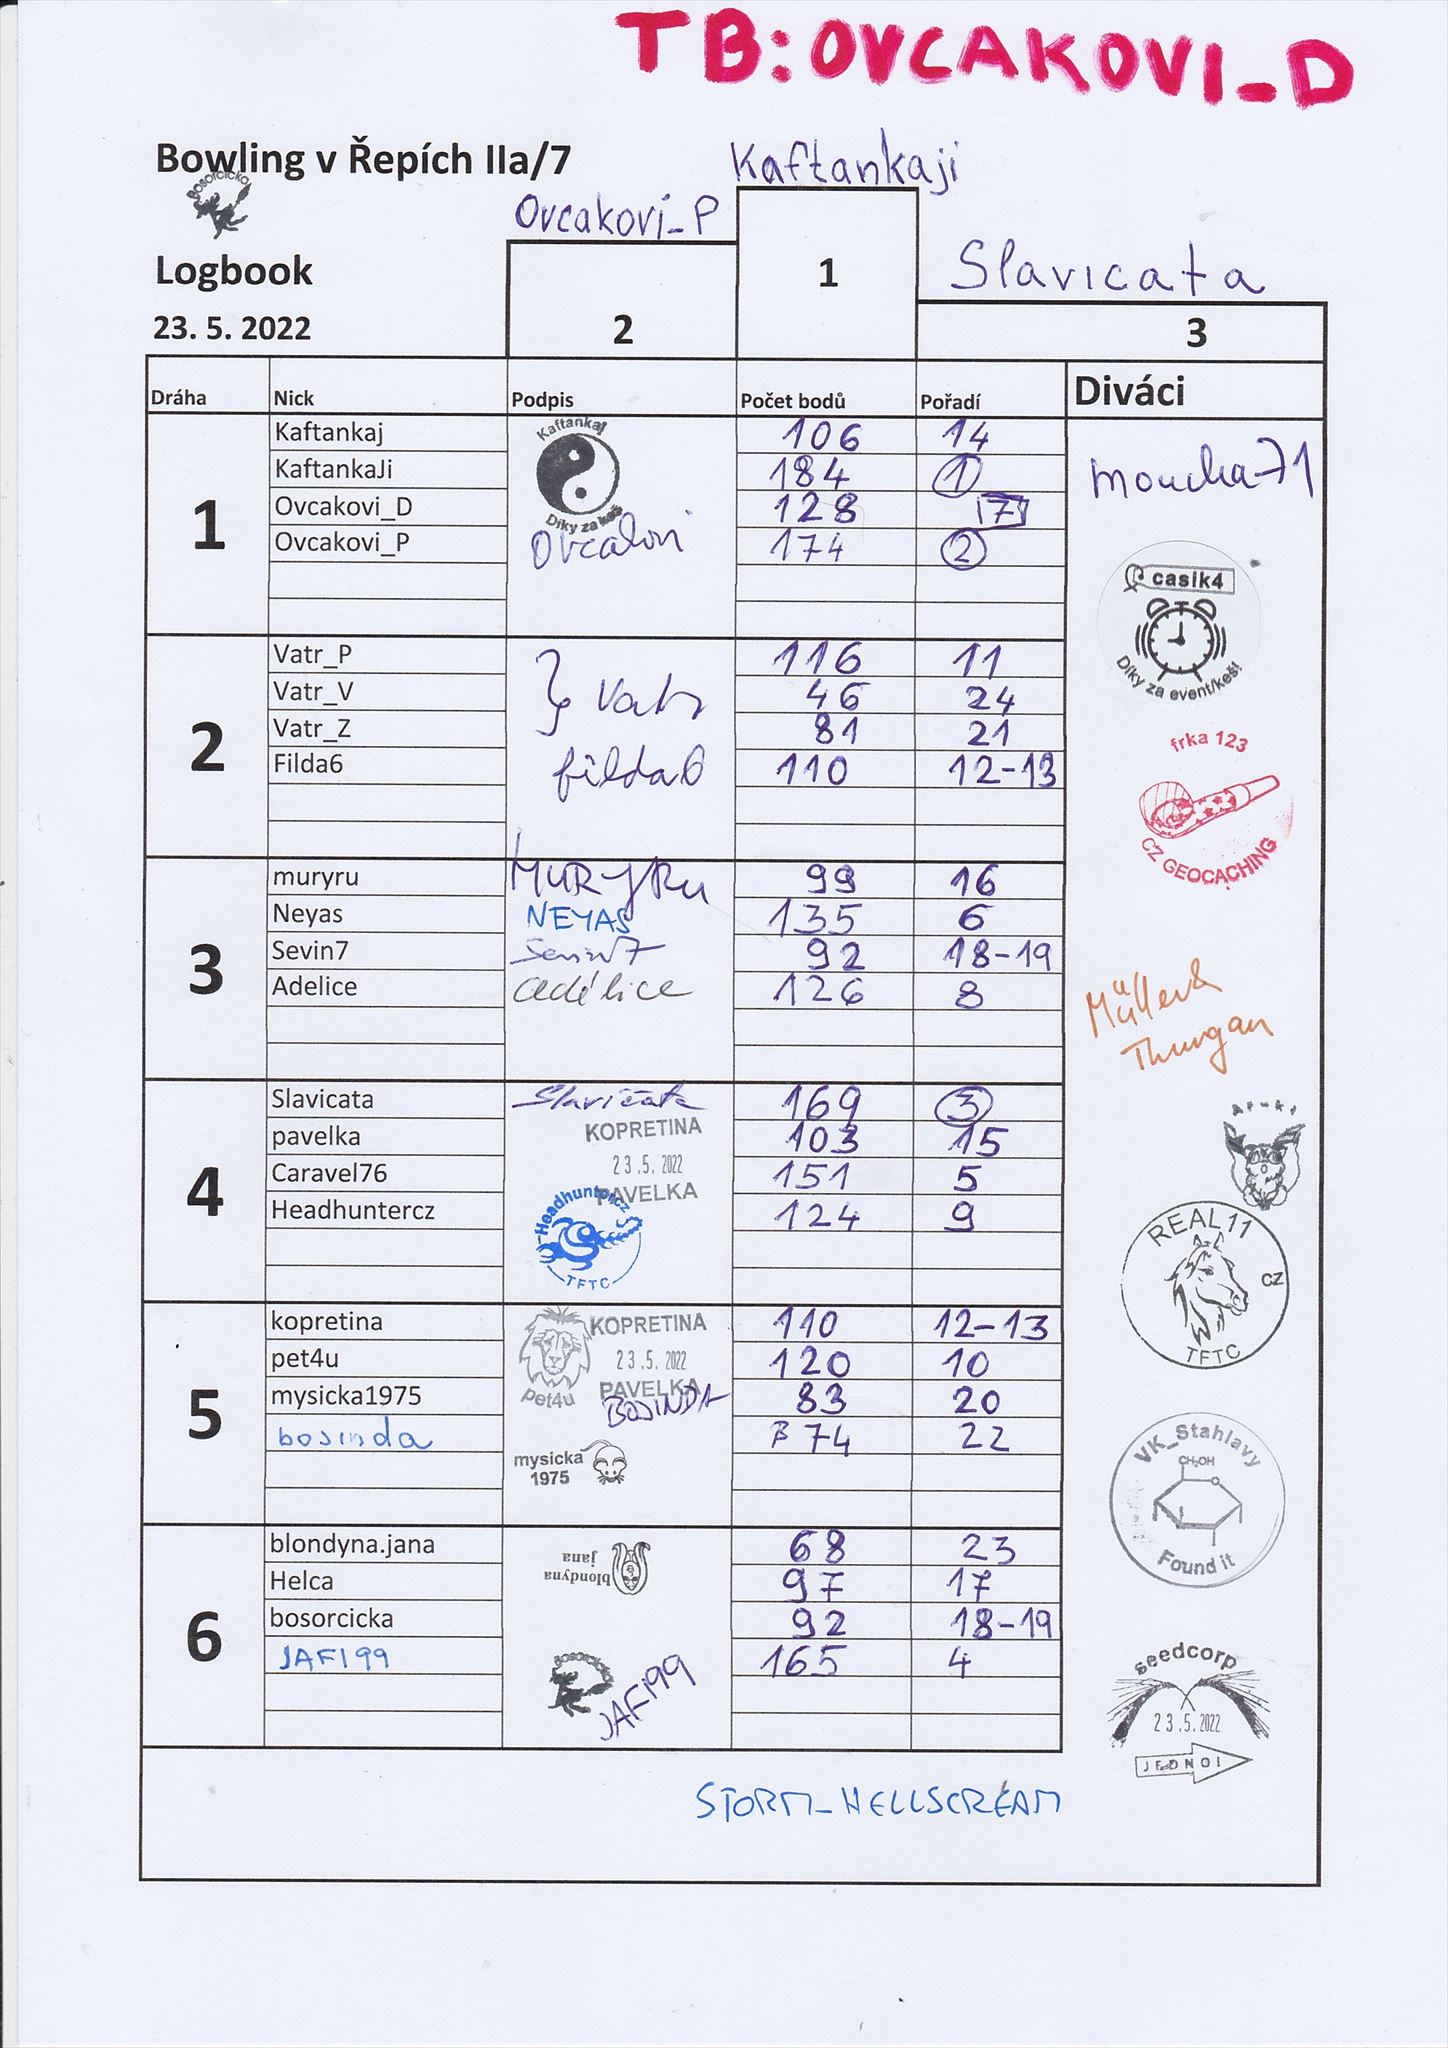 TB:OVCAKOVI_D
Bowling v Řepích IIa/7
Kaftankaji
Bosorcicka
Ovcakovi_P
Logbook
1
Slavicata
23. 5. 2022
2
3
Dráha Nick Podpis Počet bodů Pořadí Diváci
1
Kaftankaj Kaftankaj 106 14
KaftankaJi 184 1
Ovcakovi_D Díky za keš 128 7
Ovcakovi_P Ovcakovi 174 2
moucha71
casik4
Díky za event/keš!
2
Vatr_P 116 11
Vatr_V Vatr 46 24
Vatr_Z 81 21
Filda6 filda6 110 12-13
frka 123
CZ GEOCACHING
3
muryru MURYRu 99 16
Neyas NEYAS 135 6
Sevin7 Sevin7 92 18-19
Adelice adélice 126 8
Müller &
Thurgan
4
Slavicata Slavičata 169 3
pavelka KOPRETINA 103 15
Caravel76 23.5.2022 151 5
PAVELKA
Headhuntercz Headhuntercz 124 9
TFTC
Aruki
REAL11
CZ
TFTC
5
kopretina KOPRETINA 110 12-13
pet4u 23.5.2022 120 10
mysicka1975 pet4u PAVELKA 83 20
bosinda BOSINDA 74 22
mysicka
1975
VK_Stahlavy
CH₂OH
O
Found it
6
blondyna.jana blondyna jana 68 23
Helca 97 17
bosorcicka Bosorcicka 92 18-19
JAFI99 JAFI99 165 4
seedcorp
23.5.2022
JEDNOI
STORM_HELLSCREAM